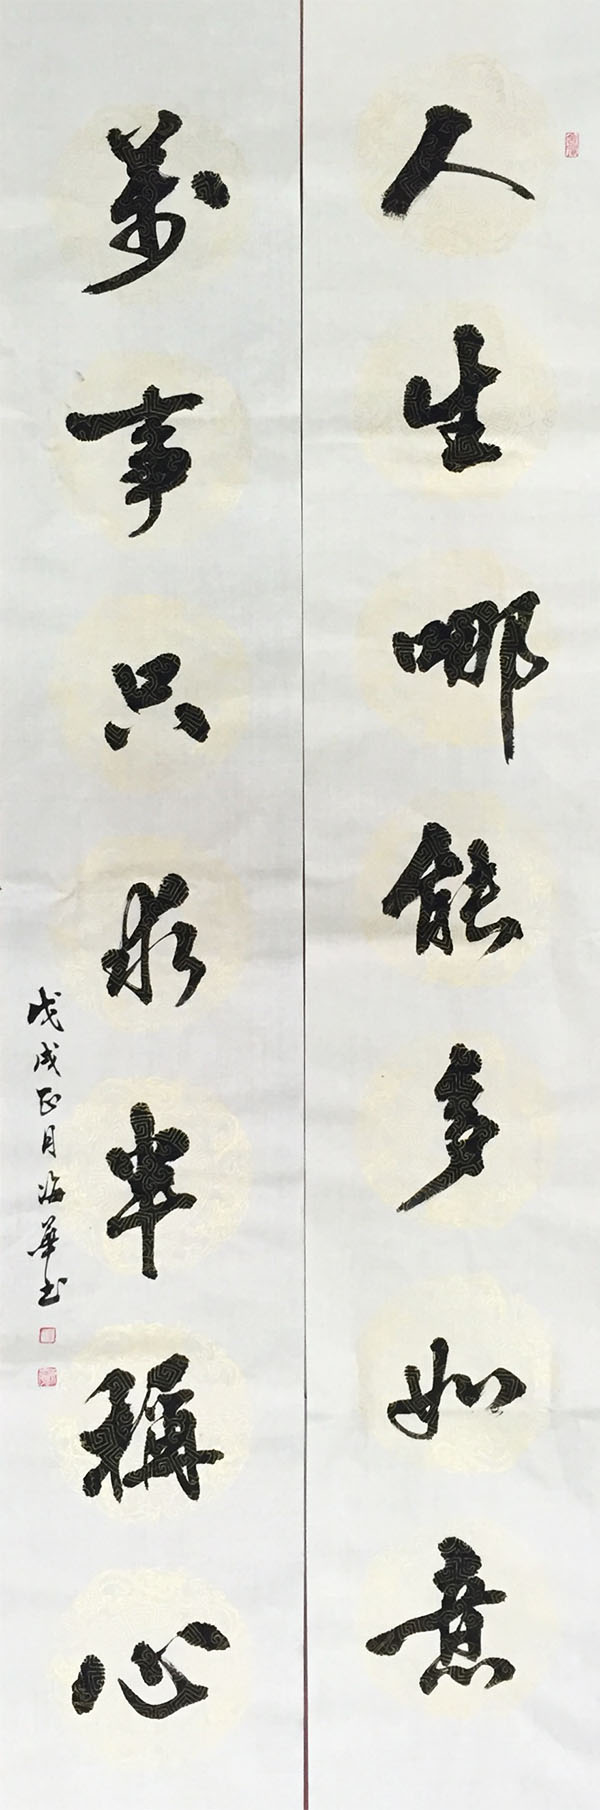 人生哪能多如意
萬事只求半稱心
戊戌正月海華书